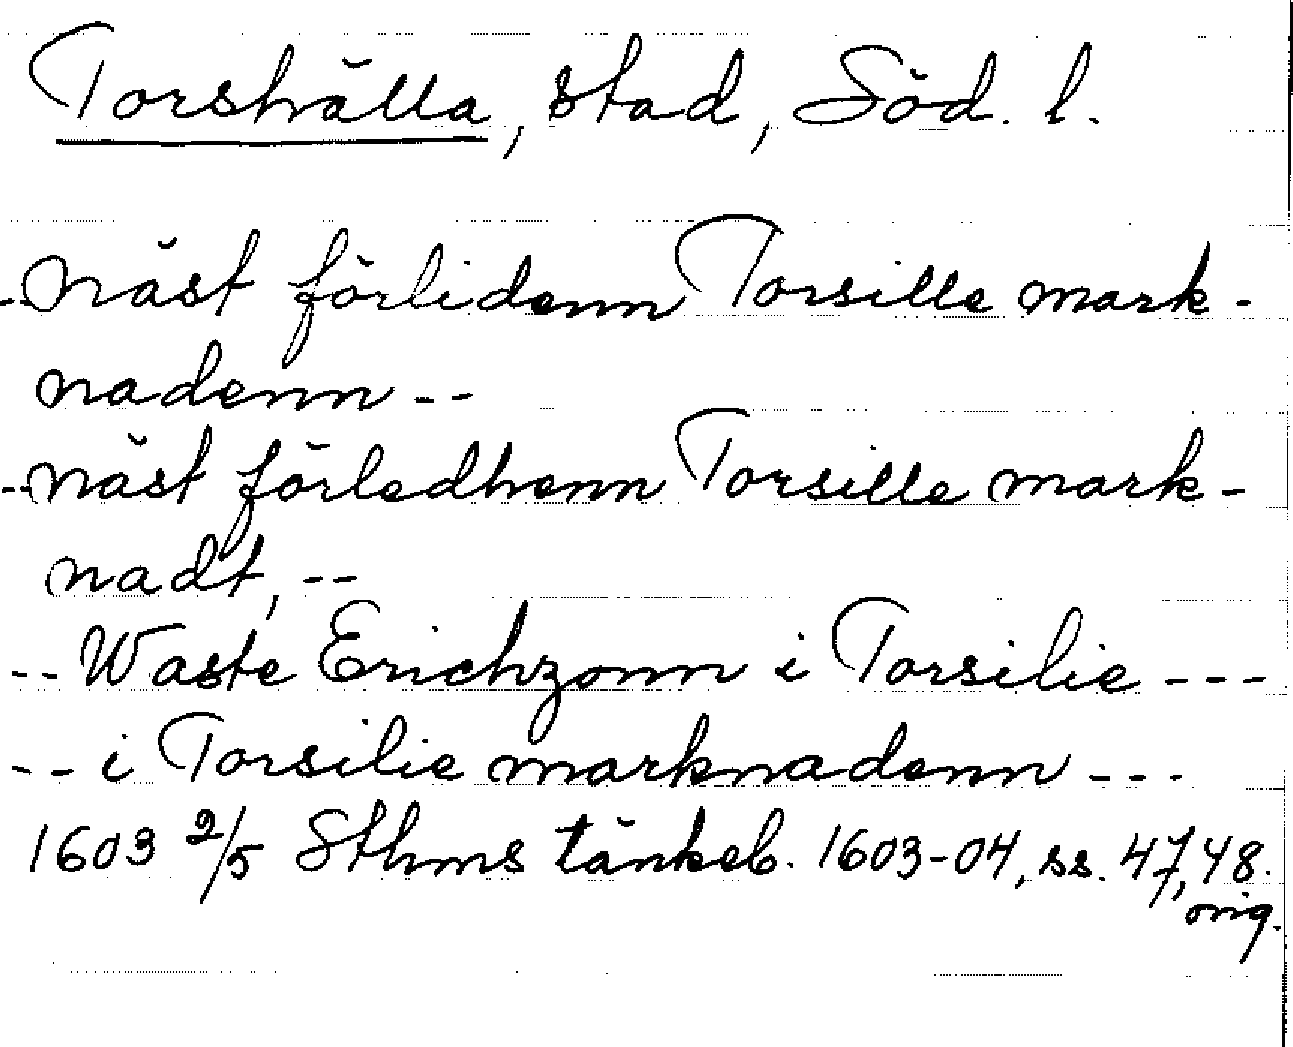 Torshälla, stad, Söd. l.
-näst förlidenn Torsille mark-
nadenn --
--näst förledhenn Torsille mark-
nadt, --
-- Waste Erichzonn i Torsilie ---
-- i Torsilie marknadenn ---
1603 2/5 Sthms tänkeb. 1603-04, ss. 47, 48.
orig.